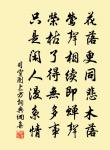 花落更同悲木落
鶯聲相續即蟬聲
榮枯了得無多事
只是閑人漫系情
司空圖上方詞典網集